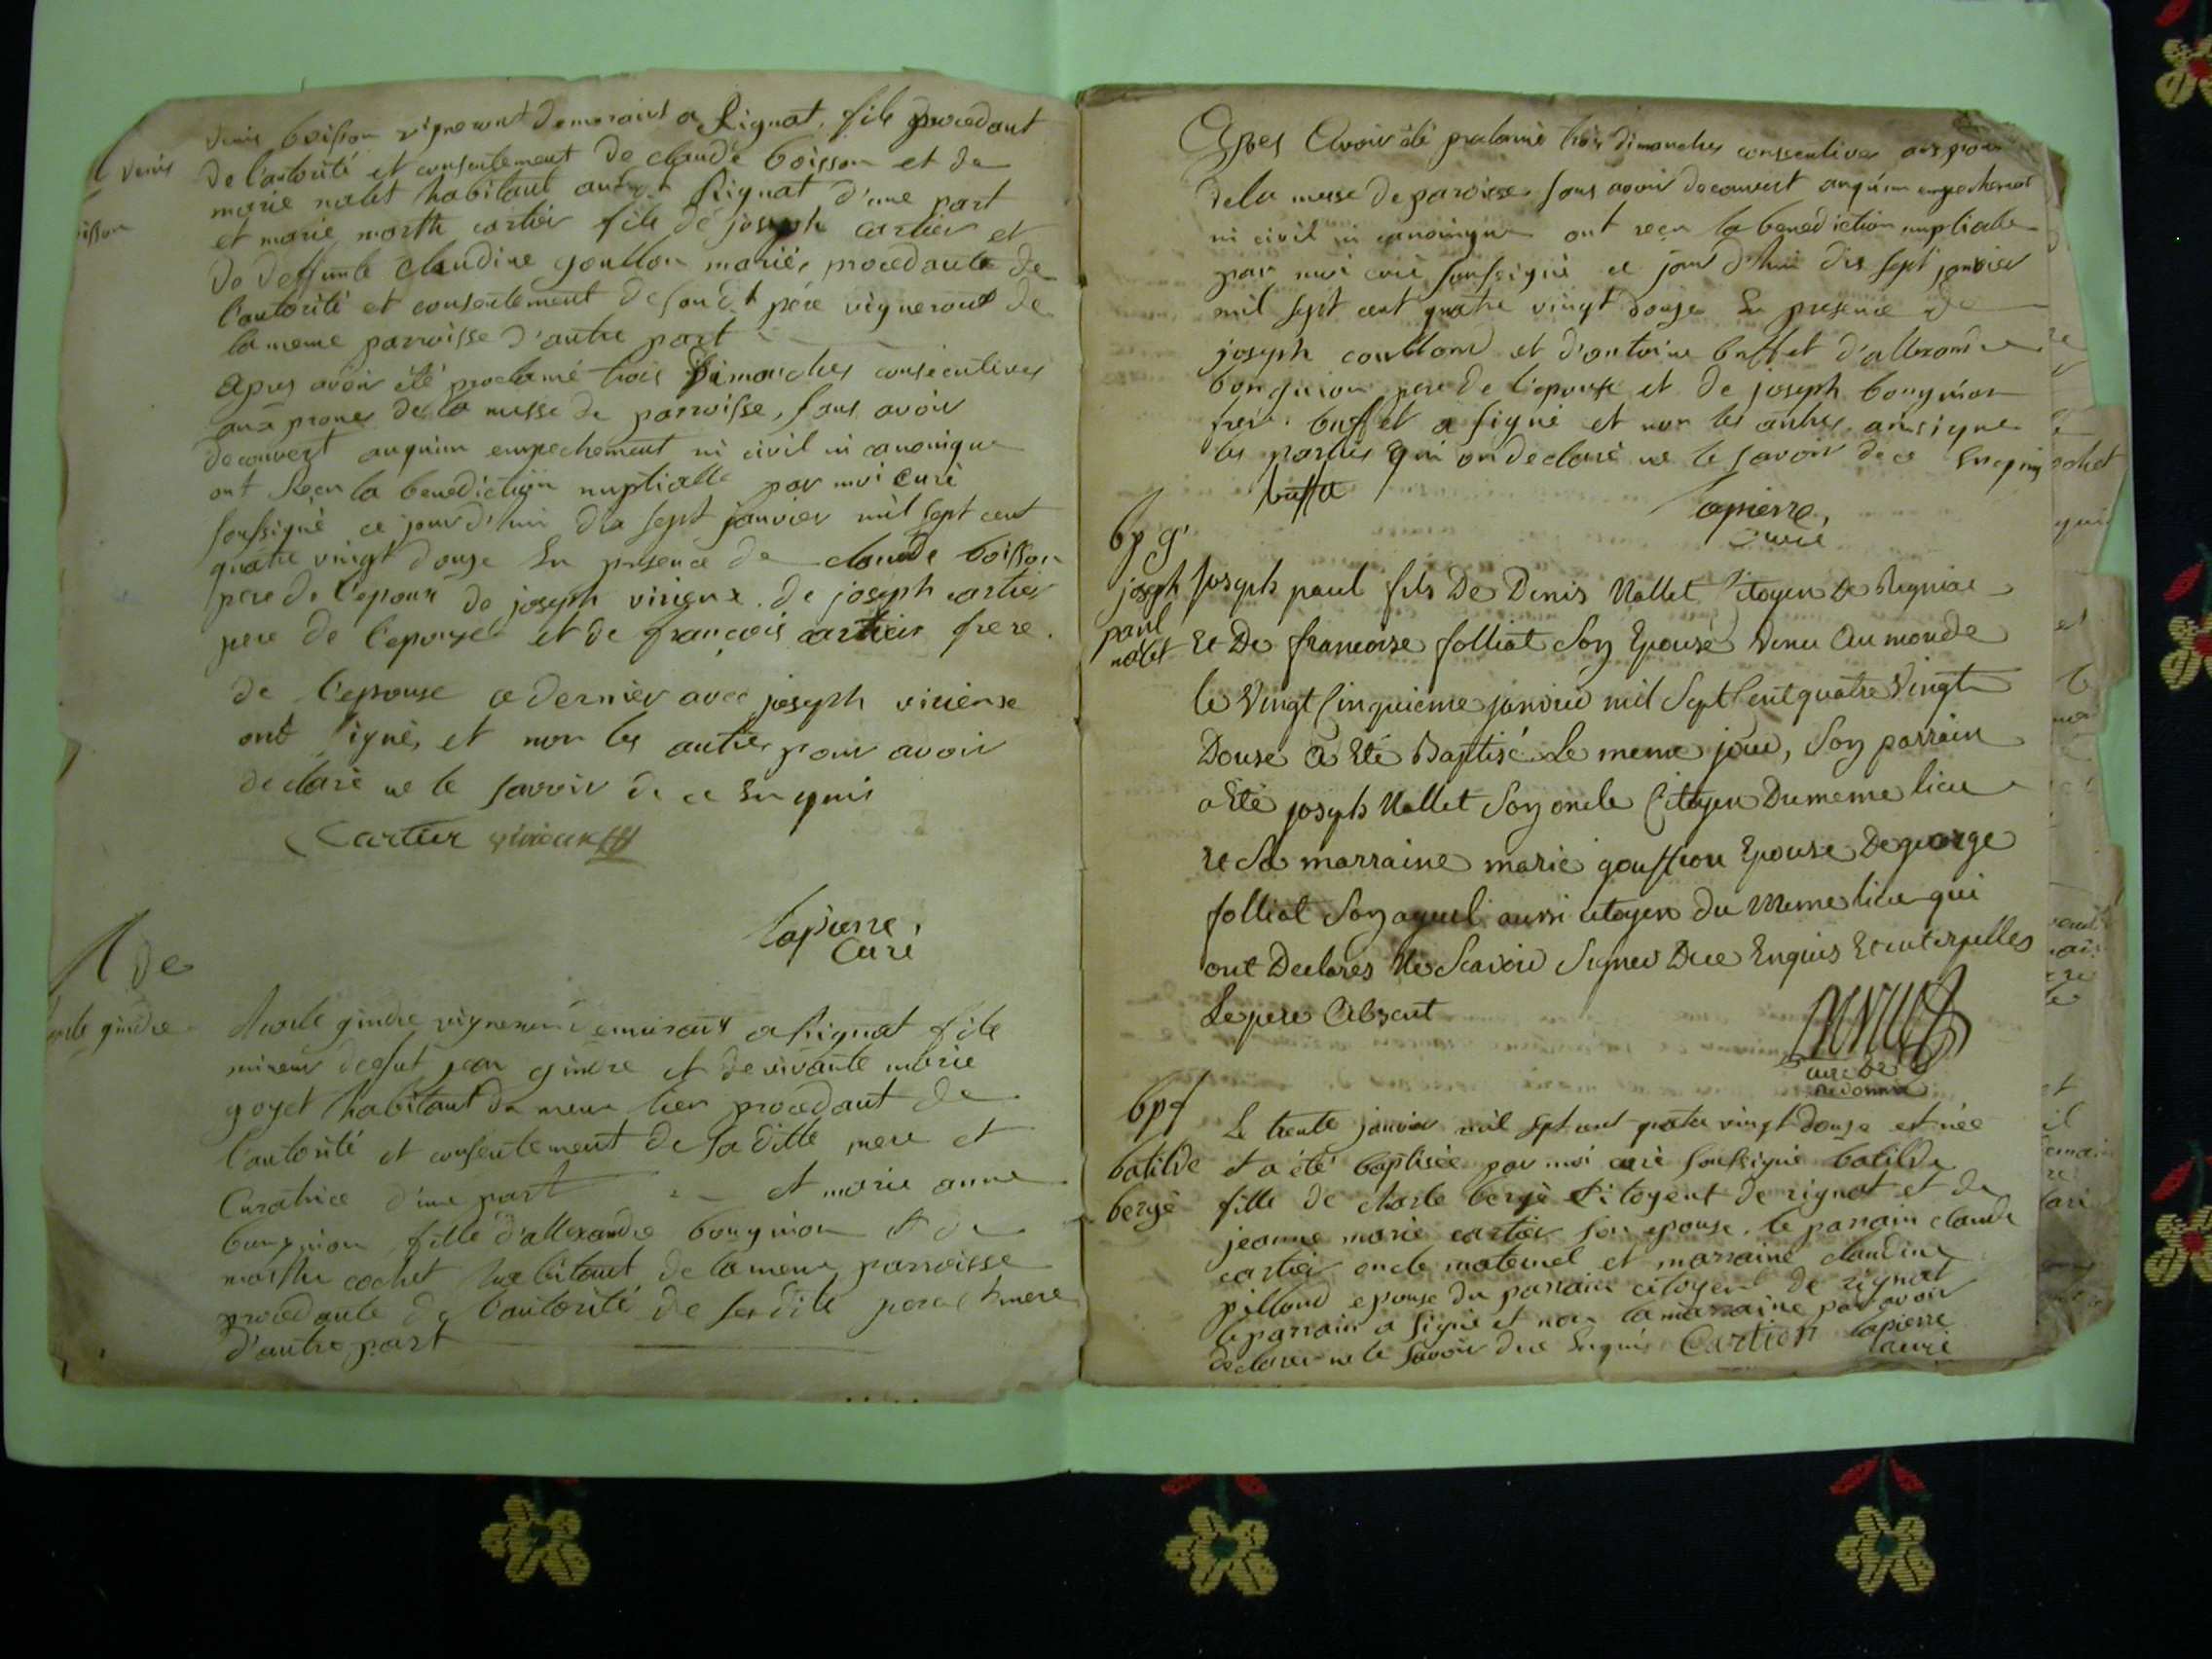 denis
denis boisson vigneront demorant a Rignat, fils procedant
de l'autorité et consentement de claude boisson et de
marie nalet habitant audit Rignat d'une part
et marie marthe cartier fille de joseph cartier et
de deffunte claudine goullon mariés, procedante de
l'autorité et consentement de son dit père vigneront de
la meme parroisse d'autre part
apres avoir été proclamé trois dimanches consecutives
aux prones de la messe de parroisse, sans avoir
decouvert auquun empechement ni civil ni canonique
ont recu la benediction nuptialle par moi curé
soussigné ce jour d'hui dix sept janvier mil sept cent
quatre vingt douze En presence de claude boisson
pere de l'epoux de joseph virieux. de joseph cartier
pere de l'epouse et de françois cartier frere.
de l'epouse ce dernier avec joseph virieux
ont signé, et non les autres pour avoir
declaré ne le savoir de ce Enquis
Cartier virieux
lapierre,
curé
gindre
gindre vigneront demurant a Rignat fils
mineur defut jean gindre et de vivante marie
goyet habitant du meme lieu procedant de
l'autorité et consentement de sa ditte mere et
Curatrice d'une part et marie anne
bougnion fille d'allexandre bougnion et de
marthe cochet habitant de la meme parroisse
procedante de l'autorité de ses dits pere et mere
d'autre part
Apres Avoir été proclamé trois dimanches consecutives aux prones
de la messe de paroisse sans avoir decouvert auquun empechement
ni civil ni canonique ont reçu la benediction nuptialle
par moi curé soussigné ce jour d'hui dix sept janvier
mil sept cent quatre vingt douze En presence de
joseph coullond et d'antoine buffet d'allexandre
bougnion pere de l'epouse et de joseph bougnion
frere. buffet a signé et non les autres ainsi que
les parties qui on declaré ne le savoir de ce Enquis
buffet
lapierre,
curé
bp g
joseph
paul
nalet
joseph paul fils De Denis Nallet Citoyen De Regniat
Et De francoise folliat Son Epouse Venu Au monde
le Vingt Cinquieme janvier mil Sept Cent quatre Vingt
Douse A Eté Baptisé Le meme jour, Son parrain
a Eté joseph Nallet Son oncle Citoyen Du meme lieu
et Sa marraine marie Epouse De george
folliat Son ayeul aussi citoyen du meme lieu qui
ont Declares Ne Scavoir Signer De ce Enquis Et interpelles
Le pere Absent
curé De
bp f
batilde
bergé
Le trente janvier mil sept cent quatre vingt douze est née
et a été baptisée par moi curé soussigné batilde
fille de charle bergé Citoyent de rignat et de
jeanne marie cartier son epouse. le parrain claude
cartier oncle maternel et marraine claudine
pilloud epouse du parrain citoyent de rignat
le parrain a signé et non la marraine pour avoir
declarer ne le savoir de ce Enquis Cartier lapierre
curé